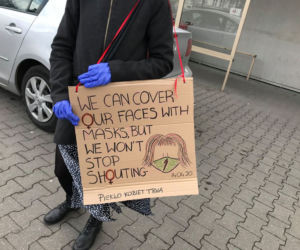 WE CAN COVER
OUR FACES WITH
MASKS, BUT
WE WON'T
STOP
SHOUTING
14.04.20
PIEKŁO KOBIET TRWA